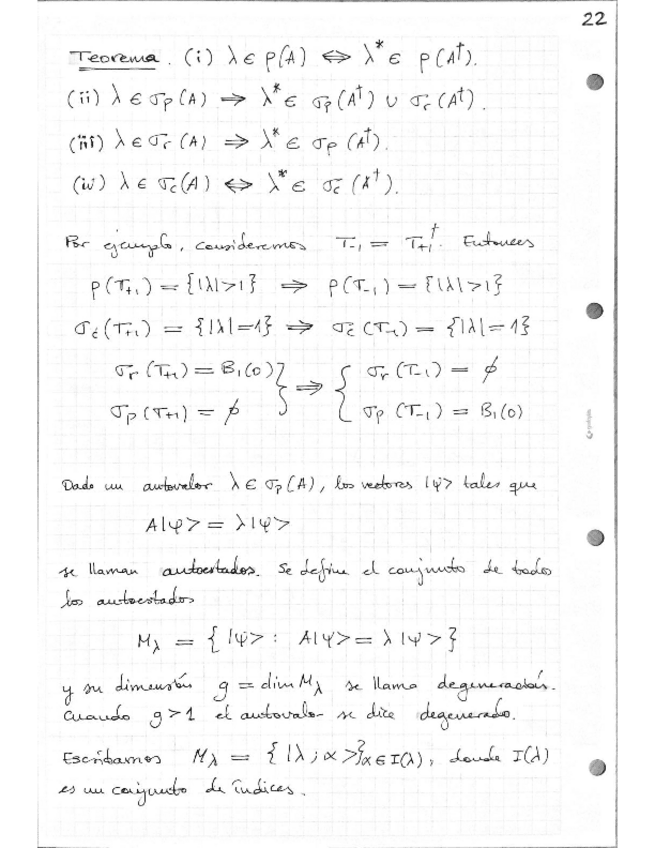 22
Teorema. (i) λ ∈ ρ(A) ⇔ λ* ∈ ρ(A†).
(ii) λ ∈ σp(A) ⇒ λ* ∈ σp(A†) ∪ σr(A†).
(iii) λ ∈ σr(A) ⇒ λ* ∈ σp(A†).
(iv) λ ∈ σc(A) ⇔ λ* ∈ σc(A†).
Por ejemplo, consideremos T₋₁ = T₊₁†. Entonces
ρ(T₊₁) = {|λ|>1} ⇒ ρ(T₋₁) = {|λ|>1}
σc(T₊₁) = {|λ|=1} ⇒ σc(T₋₁) = {|λ|=1}
σr(T₊₁) = B₁(0) } ⇒ { σr(T₋₁) = ∅
σp(T₊₁) = ∅ } { σp(T₋₁) = B₁(0)
Dado un autovalor λ ∈ σp(A), los vectores |ψ> tales que
A|ψ> = λ|ψ>
se llaman autoestados. Se define el conjunto de todos
los autoestados
Mλ = { |ψ> : A|ψ> = λ|ψ> }
y su dimensión g = dim Mλ se llama degeneración.
Cuando g > 1 el autovalor se dice degenerado.
Escribamos Mλ = { |λ;α> }α∈I(λ), donde I(λ)
es un conjunto de índices.